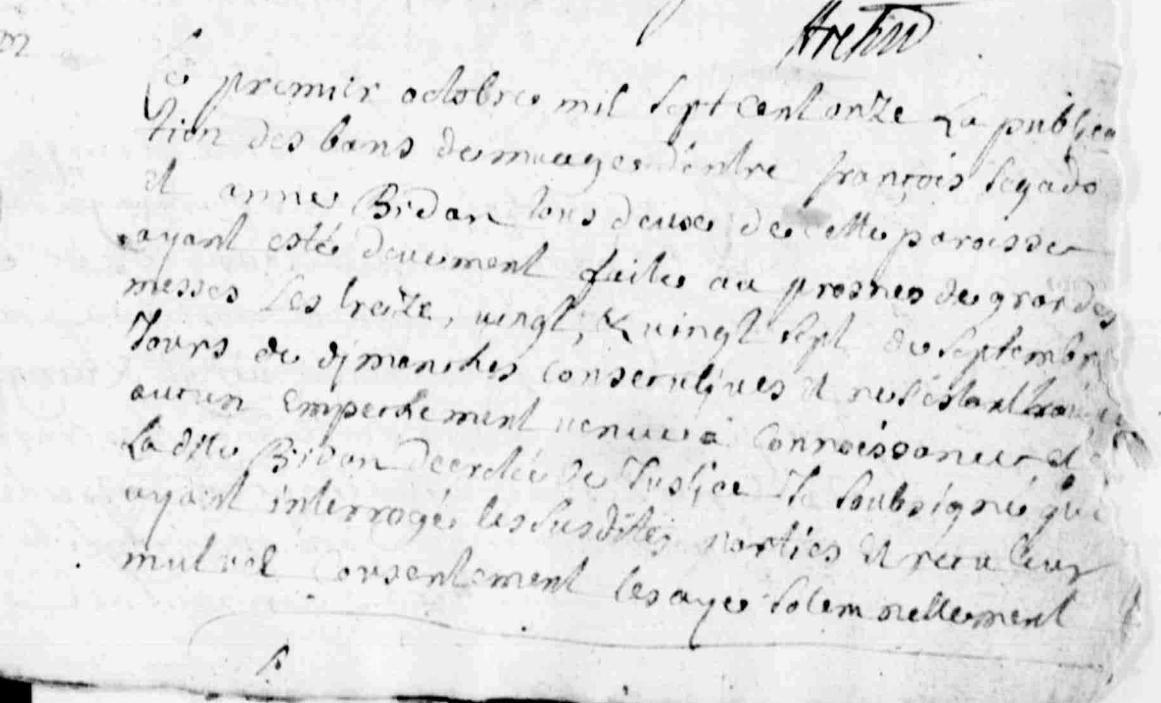 Le premier octobre mil sept cent onze La publica
tion des bans de mariage d'entre françois Segado
et anne Bidan tous deux de cette paroisse
ayant esté deuement faite au prosnes de grandes
messes les treize, vingt, & vingt sept de septembre
Jours de dimanches consecutives et ne s'estant trouvé
aucun empechement venue à connoissance et
Ladite Bidan decretée de Justice Je soubsigné qui
ayant interrogé les susdites parties et receu leur
mutuel consentement les aye solemnellement